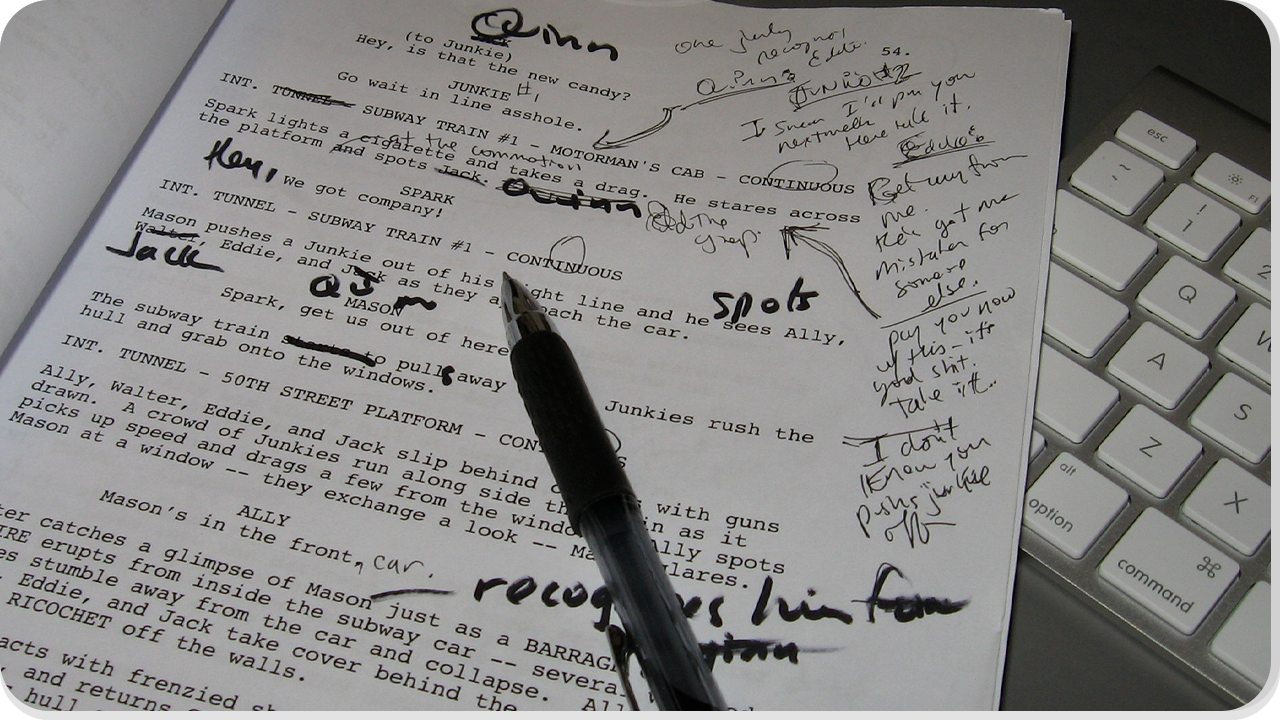 Quinn
(to Junkie)
Hey, is that the new candy?
54.
JUNKIE #1
Go wait in line asshole.
INT. TUNNEL SUBWAY TRAIN #1 - MOTORMAN'S CAB - CONTINUOUS
at the commotion
Spark lights a cigarette and takes a drag. He stares across
the platform and spots Jack. Quinn
Hey,
SPARK
We got company!
INT. TUNNEL - SUBWAY TRAIN #1 - CONTINUOUS
Mason pushes a Junkie out of his ght line and he sees Ally, spots
Walter, Eddie, and Jack as they a oach the car.
Jack
MASON
Spark, get us out of here
The subway train pulls away Junkies rush the
hull and grab onto the windows.
INT. TUNNEL - 50TH STREET PLATFORM - CON S
Ally, Walter, Eddie, and Jack slip behind s with guns
drawn. A crowd of Junkies run along side th in as it
picks up speed and drags a few from the windo lly spots
Mason at a window -- they exchange a look -- Ma lares.
ALLY
Mason's in the front, car.
ter catches a glimpse of Mason just as a BARRAG
IRE erupts from inside the subway car -- severa
es stumble away from the car and collapse. All
, Eddie, and Jack take cover behind the
RICOCHET off the walls.
acts with frenzied sh
, and returns
hull
one junky
recognizes
Eddie.
Quinn
JUNKIE #2
I swear I'll pay you
next week
Here take it.
Eddie
Get away from
me.
He's got me
mistaken for
someone
else.
pay you now
w/this - it's
good shit.
Take it..
I don't
know you
push junkie
off
Eddie
group.
recog es him from
esc
F1
~
`
!
1
Q
W
A
S
Z
X
alt
option
⌘
command